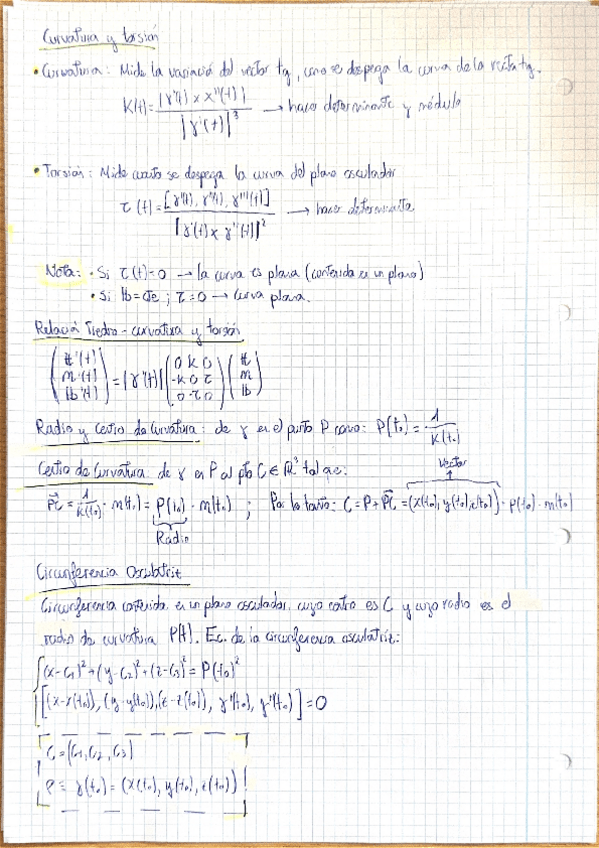 Curvatura y torsión
• Curvatura: Mide la variació del vector tg, como se despega la curva de la recta tg.
K(t) = |γ'(t) x γ''(t)| / |γ'(t)|³ → hacer determinante y módulo
• Torsión: Mide cuanto se despega la curva del plano osculador
τ(t) = [γ'(t), γ''(t), γ'''(t)] / |γ'(t) x γ''(t)|² → hacer determinante
Nota: • Si τ(t)=0 → la curva es plana (contenida en un plano)
• Si b=cte; τ=0 → curva plana.
Relación Triedro - curvatura y torsión
(t'(t) n'(t) b'(t)) = |γ'(t)| (0 k 0 -k 0 τ 0 -τ 0) (t n b)
Radio y centro de curvatura: de γ en el punto P como: ρ(t₀) = 1/K(t₀)
Centro de curvatura de γ en P al pto C ∈ ℝ³ tal que:
Vector
PC = 1/K(t₀) · n(t₀) = ρ(t₀) · n(t₀) ; Por lo tanto: C = P + PC = (x(t₀), y(t₀), z(t₀)) · ρ(t₀) · n(t₀)
Radio
Circunferencia Osculatriz
Circunferencia contenida en un plano osculador, cuyo centro es C y cuyo radio es el
radio de curvatura ρ(t). Ec. de la circunferencia osculatriz:
(x-c₁)² + (y-c₂)² + (z-c₃)² = ρ(t₀)²
[(x-x(t₀)), (y-y(t₀)), (z-z(t₀)), γ'(t₀), γ''(t₀)] = 0
C = (c₁, c₂, c₃)
P ≡ γ(t₀) = (x(t₀), y(t₀), z(t₀))